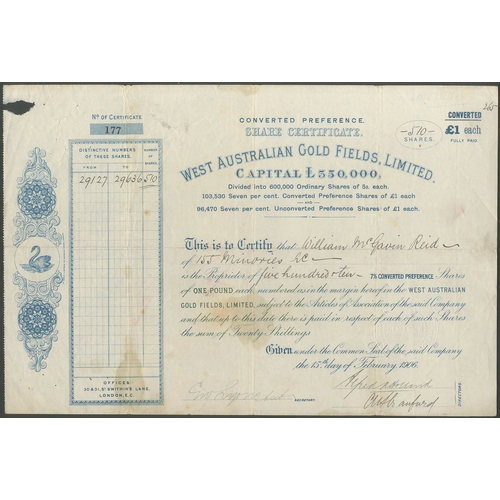 265
Nº OF CERTIFICATE
177
DISTINCTIVE NUMBERS OF THESE SHARES.
NUMBER OF SHARES.
FROM TO
29127 29636 510
CONVERTED PREFERENCE.
SHARE CERTIFICATE.
WEST AUSTRALIAN GOLD FIELDS, LIMITED.
CAPITAL £350,000,
Divided into 600,000 Ordinary Shares of 5s. each.
103,530 Seven per cent. Converted Preference Shares of £1 each
AND
96,470 Seven per cent. Unconverted Preference Shares of £1 each.
—510—
SHARES
CONVERTED
£1 each
FULLY PAID.
This is to Certify that William McGavin Reid
of 155 Minories EC
is the Proprietor of five hundred & ten 7% CONVERTED PREFERENCE Shares
of ONE POUND each, numbered as in the margin hereof in the WEST AUSTRALIAN
GOLD FIELDS, LIMITED, subject to the Articles of Association of the said Company
and that up to this date there is paid in respect of each of such Shares
the sum of Twenty Shillings
Given under the Common Seal of the said Company
the 15th day of February 1906.
SECRETARY.
DIRECTORS
OFFICES:
20 & 21, St SWITHIN'S LANE,
LONDON, E.C.